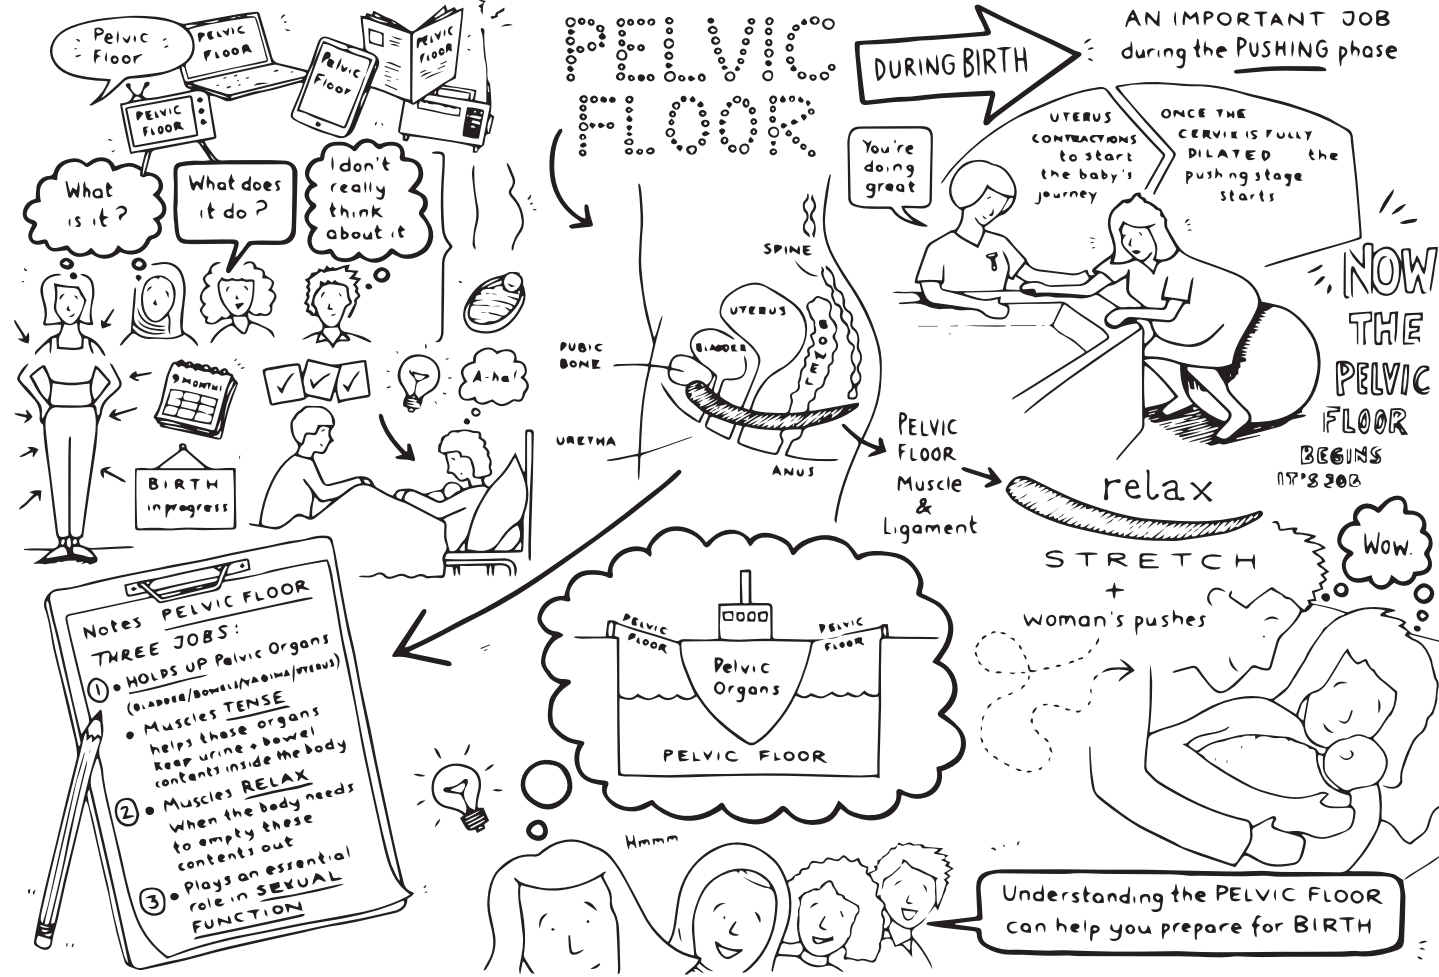 Pelvic
Floor
PELVIC
FLOOR
PELVIC
FLOOR
Pelvic
Floor
PELVIC
FLOOR
What
is it?
What does
it do?
I don't
really
think
about it
9 MONTHS
A-ha!
BIRTH
in progress
PELVIC
FLOOR
SPINE
UTERUS
BLADDER
BOWEL
PUBIC
BONE
URETHA
ANUS
PELVIC
FLOOR
Muscle
&
Ligament
DURING BIRTH
AN IMPORTANT JOB
during the PUSHING phase
You're
doing
great
UTERUS
CONTRACTIONS
to start
the baby's
journey
ONCE THE
CERVIX IS FULLY
DILATED the
pushing stage
starts
NOW
THE
PELVIC
FLOOR
BEGINS
IT'S JOB
relax
STRETCH
+
woman's pushes
Wow.
Notes PELVIC FLOOR
THREE JOBS:
1 • HOLDS UP Pelvic Organs
(BLADDER/BOWELS/VAGINA/UTERUS)
• Muscles TENSE
helps those organs
Keep urine + bowel
contents inside the body
2 • Muscles RELAX
When the body needs
to empty these
contents out
3 • Plays an essential
role in SEXUAL
FUNCTION
PELVIC
FLOOR
PELVIC
FLOOR
Pelvic
Organs
PELVIC FLOOR
Hmmm
Understanding the PELVIC FLOOR
can help you prepare for BIRTH